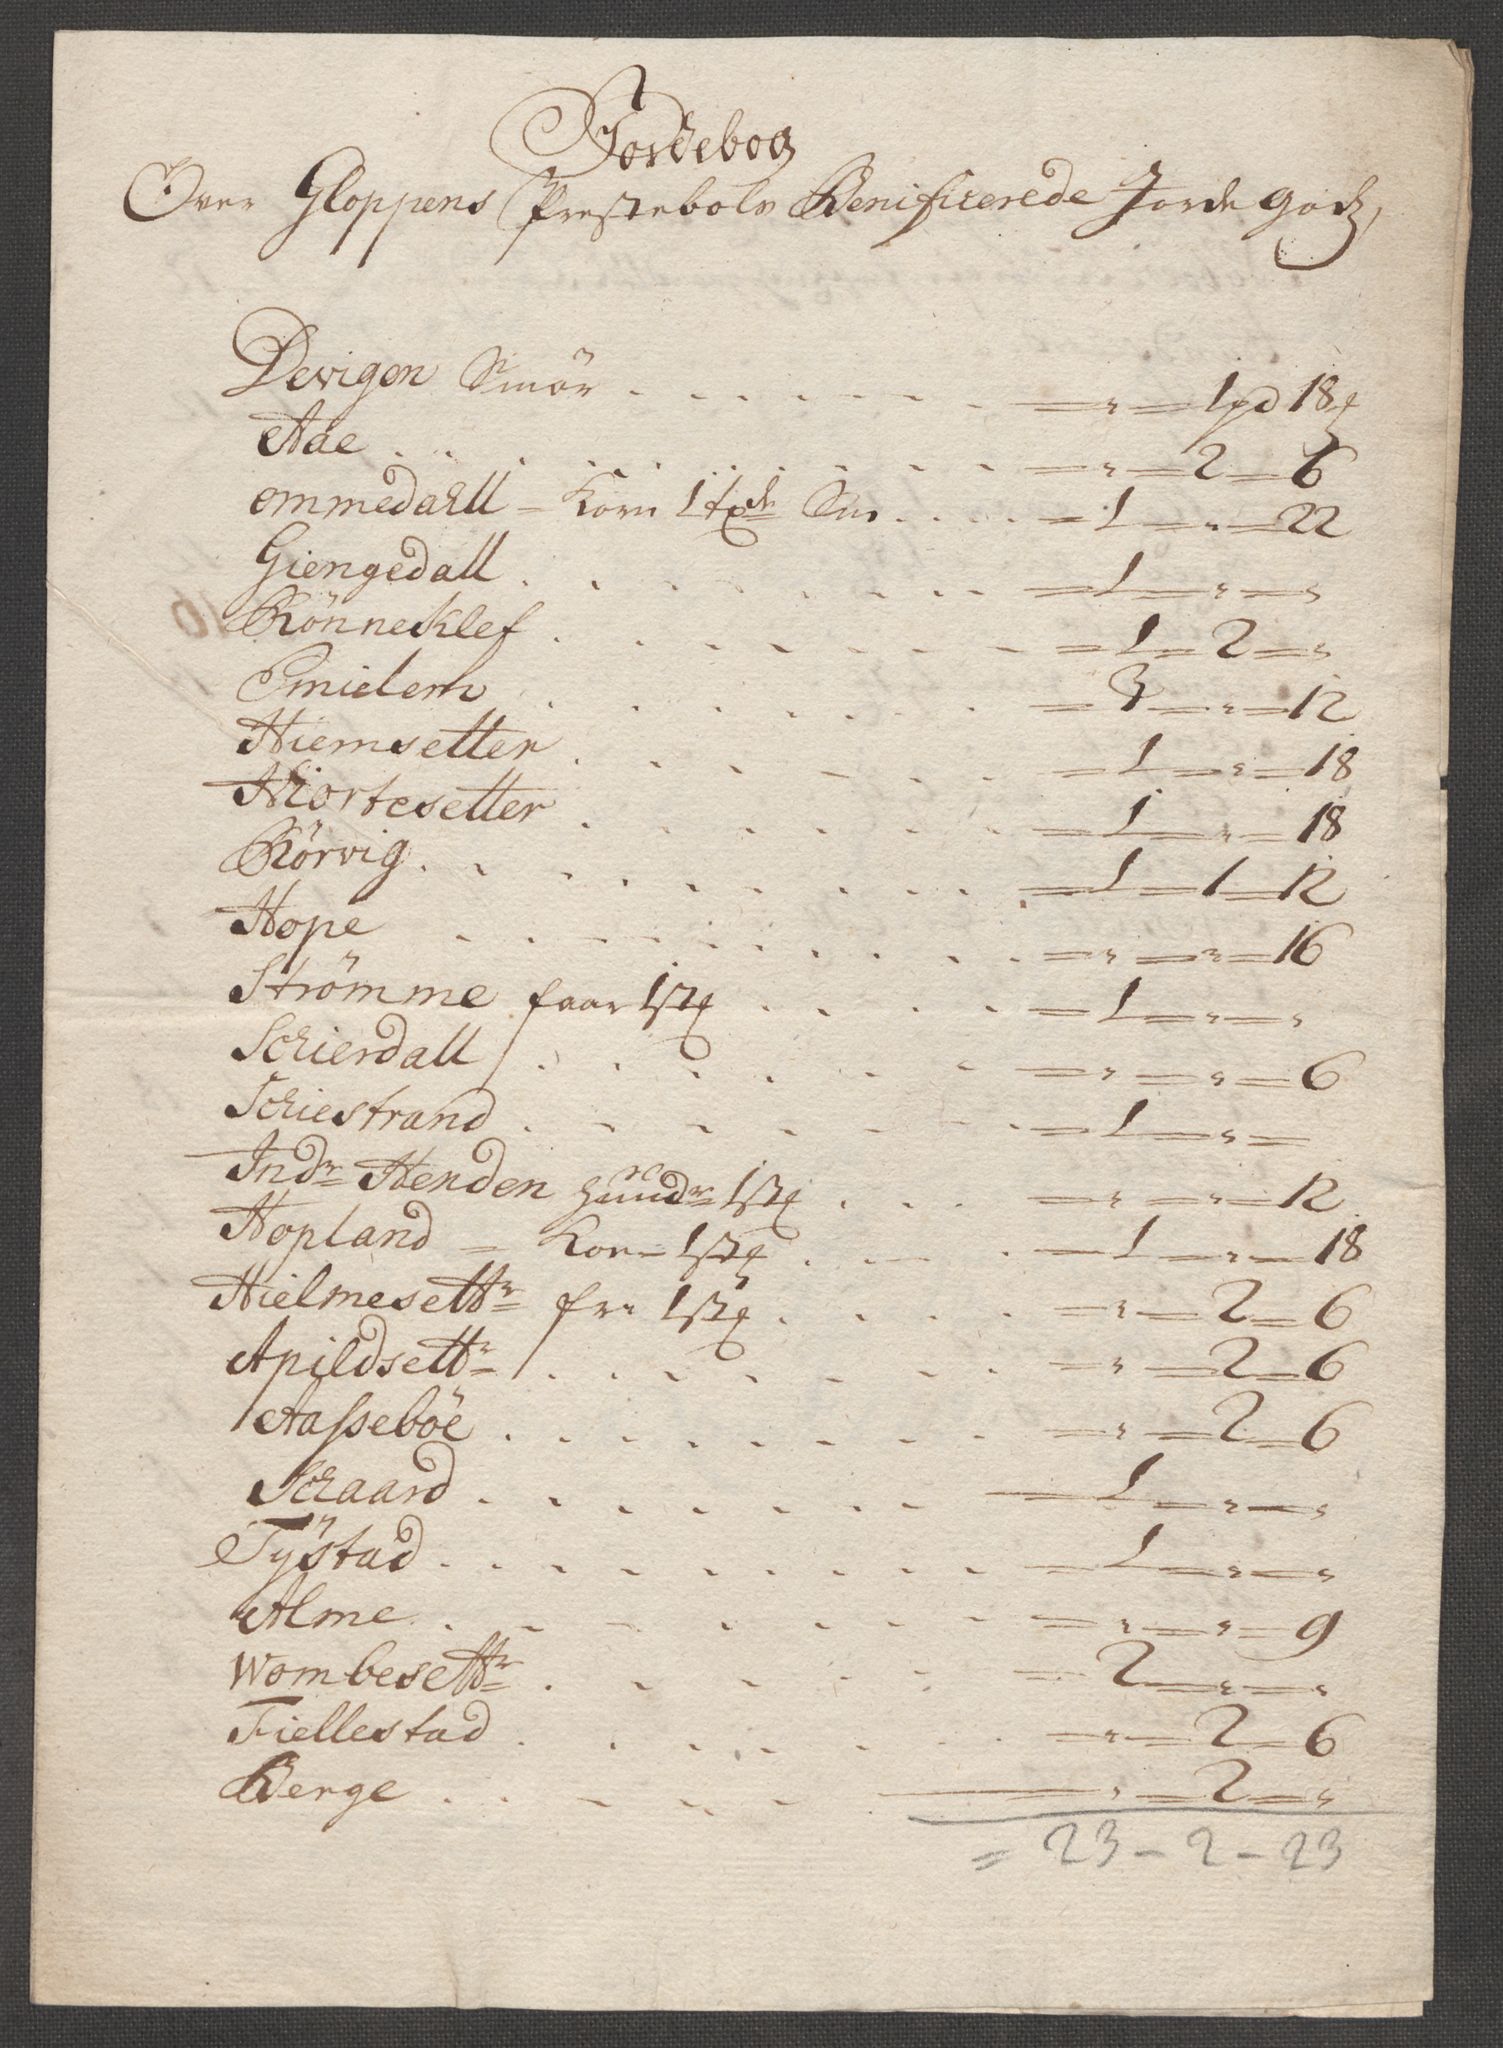 Jordebog
Over Gloppens Prestebols Benificerede Jorde godz,
Devigen Smör . . . . . . = " = 1 pd 18 ʠ
Aae . . . . . . . . . = " = 2 = 6
ommedall = Korn 1 tde Sm . . . . = 1 = " = 22
Giengedall . . . . . . . = 1 = " = "
Rönneklef . . . . . . = 1 = 2 = "
Emielem . . . . . . . = 3 = " = 12
Hiemsetter . . . . . . = 1 = " = 18
Hiortesetter . . . . . . = 1 = " = 18
Rörvig . . . . . . . . = 1 = 1 = 12
Hope . . . . . . . . = " = " = 16
Strömme faar 1 stq . . . . = 1 = " = "
Schierdall . . . . . . . = " = " = 6
Schiestrand . . . . . . . = 1 = " =
Indr Henden huudr 1 stq . . . = " = " = 12
Hopland = Korn 1 stq . . . = 1 = " = 18
Hielmesettr 1 stq . . . . = " = 2 = 6
Apildsettr . . . . . . . = " = 2 = 6
Aasseböe . . . . . . . = " = 2 = 6
Schaard . . . . . . . = 1 = " = "
Tÿstad . . . . . . . . = 1 = " = "
Alme . . . . . . . . = " = " = 9
Wombesettr . . . . . . = 2 = " = "
Fiellestad . . . . . . . = " = 2 = 6
Berge . . . . . = " = 2 = "
= 23 - 2 - 23